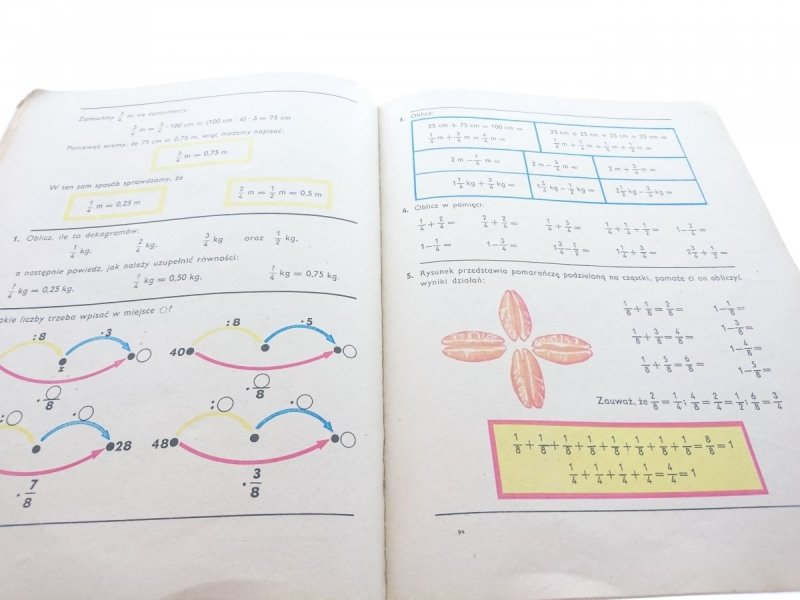 Zamieńmy 3/4 m na centymetry:
3/4 m = 3/4 · 100 cm = (100 cm : 4) · 3 = 75 cm
Ponieważ wiemy, że 75 cm = 0,75 m, więc możemy napisać:
3/4 m = 0,75 m
W ten sam sposób sprawdzamy, że
1/4 m = 0,25 m
2/4 m = 1/2 m = 0,5 m
1. Oblicz, ile to dekagramów:
1/4 kg, 2/4 kg, 3/4 kg oraz 1/2 kg,
a następnie powiedz, jak należy uzupełnić równości:
?/4 kg = 0,25 kg, ?/4 kg = 0,50 kg, ?/4 kg = 0,75 kg.
akie liczby trzeba wpisać w miejsce ○?
:8 ·3
x ○
·○/8
:8 ·5
40 ○
·○/8
:○ ·○
28
·7/8
:○ ·○
48 ○
·3/8
3. Oblicz:
25 cm + 75 cm = 100 cm =
1/4 m + 3/4 m = 4/4 m =
25 cm + 25 cm + 25 cm + 25 cm =
1/4 m + 1/4 m + 1/4 m + 1/4 =
2 m − 1/4 m =
2 m − 3/4 m =
2 m + 3/4 m =
1 1/4 kg + 3/4 kg =
1/2 kg =
2 1/2 kg − 3/4 kg =
4. Oblicz w pamięci:
1/4 + 2/4 = 2/4 + 2/4 = 1/4 + 3/4 = 1/4 + 1/4 + 1/2 = 1 − 2/4 =
1 − 1/4 = 1 − 3/4 = 1 3/4 − 1/2 = 1 1/4 + 3/4 = 2 3/4 + 1/2 =
5. Rysunek przedstawia pomarańczę podzieloną na cząstki, pomoże ci on obliczyć
wyniki działań:
1/8 + 1/8 = 2/8 = 1 − 1/8 =
1/8 + 3/8 = 4/8 = 1 − 3/8 =
1 − 4/8 =
1/8 + 5/8 = 6/8 = 1 − 5/8 =
Zauważ, że 2/8 = 1/4; 4/8 = 2/4 = 1/2; 6/8 = 3/4
1/8 + 1/8 + 1/8 + 1/8 + 1/8 + 1/8 + 1/8 + 1/8 = 8/8 = 1
1/4 + 1/4 + 1/4 + 1/4 = 4/4 = 1